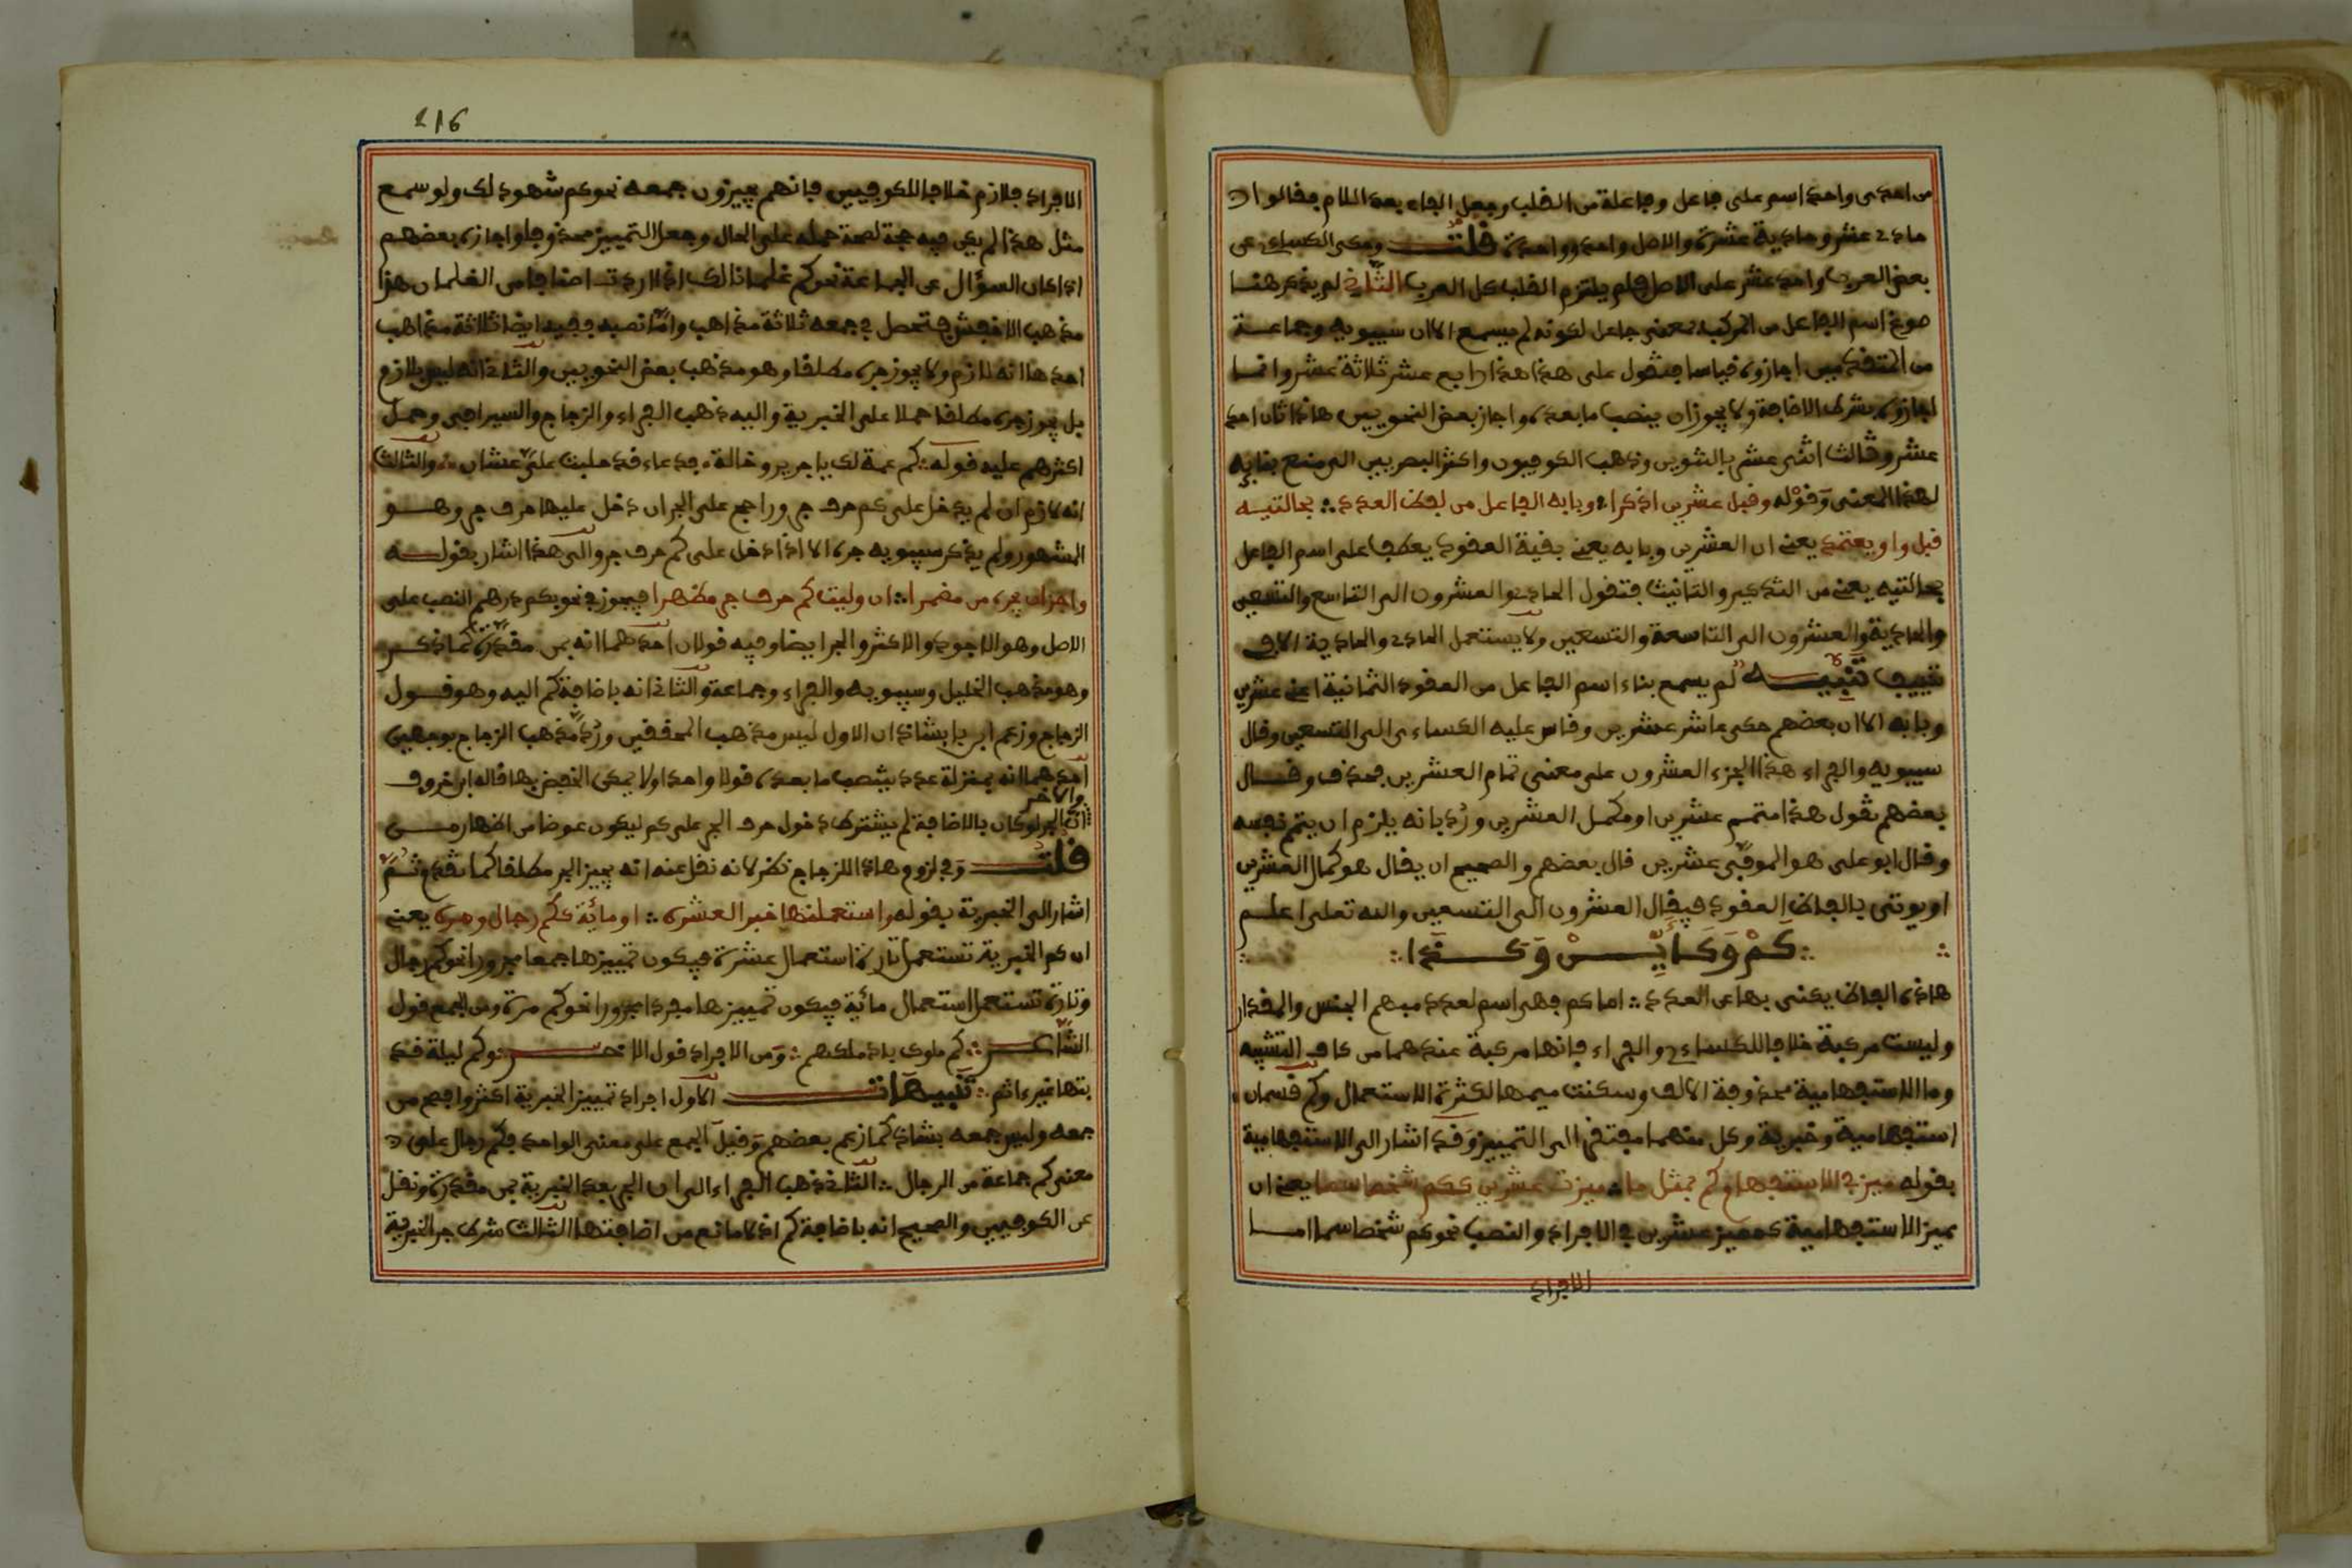 من احدى واحد اسم على فاعل وفاعلة من القلب وجعل الفاء بعد اللام فقالوا
حادي عشر وحادية عشرة والاصل واحد وواحدة قلت وحكى الكسائي عن
بعض العرب واحد عشر على الاصل فلم يلتزم القلب كل العرب الثاني لم يذكر هنا
صوغ اسم الفاعل من المركب بمعنى جاعل لكونه لم يسمع الا ان سيبويه وجماعة
من المتقدمين اجازوه قياسا فتقول على هذا هذا رابع عشر ثلاثة عشر وانما
اجازوه بشرط الاضافة ولا يجوز ان ينصب ما بعده واجاز بعض النحويين هاذا ثان احد
عشر وثالث اثني عشر بالتنوين وذهب الكوفيون واكثر البصريين الى منع بنائه
لهذا المعنى وقوله وقبل عشرين اذكرا وبابه الفاعل من لفظ العدد بحالتيه
قبل واو يعتمد يعني ان العشرين وبابه يعني بقية العقود يعطف على اسم الفاعل
بحالتيه يعني من التذكير والتانيث فتقول الحادي والعشرون الى التاسع والتسعين
والحادية والعشرون الى التاسعة والتسعين ولا يستعمل الحادي والحادية الا في
تنييف تنبيه لم يسمع بناء اسم الفاعل من العقود الثمانية اعني عشرين
وبابه الا ان بعضهم حكى عاشر عشرين وقاس عليه الكساءى الى التسعين وقال
سيبويه والفراء هذا الجزء العشرون على معنى تمام العشرين فحذف وقال
بعضهم تقول هذا متمم عشرين او مكمل العشرين ورد بانه يلزم ان يتم نفسه
وقال ابو على هو الموفي عشرين قال بعضهم والصحيح ان يقال هو كمال العشرين
او يوتى بالفاظ العقود فيقال العشرون الى التسعين والله تعلى اعلم
كم وكاين وكذا
هاذه الفاظ يكنى بها عن العدد اما كم فهى اسم لعدد مبهم الجنس والمقدار
وليست مركبة خلافا للكساءي والفراء فانها مركبة عندهما من كاف التشبيه
وما الاستفهامية محذوفة الالف وسكنت ميمها لكثرة الاستعمال وكم قسمان
استفهامية وخبرية وكل منهما مفتقر الى التمييز وقد اشار الى الاستفهامية
بقوله ميز في الاستفهام كم بمثل ما ميزت عشرين ككم شخصا سما يعني ان
مميز الاستفهامية كمميز عشرين في الافراد والنصب نحو كم شخصا سما اما
الافراد
216
الافراد فلازم خلافا للكوفيين فانهم يجيزون جمعه نحو كم شهود لك ولو سمع
مثل هذا لم يكن فيه حجة لصحة حمله على الحال وجعل التمييز محذوفا واجازه بعضهم
اذا كان السؤال عن الجماعة نحو كم غلمانا لك اذا اردت اصنافا من الغلمان هذا
مذهب الاخفش فتحصل في جمعه ثلاثة مذاهب واما نصبه ففيه ايضا ثلاثة مذاهب
احدها انه لازم ولا يجوز جره مطلقا وهو مذهب بعض النحويين والثاني انه ليس بلازم
بل يجوز جره مطلقا حملا على الخبرية واليه ذهب الفراء والزجاج والسيرافي وحمل
اكثرهم عليه قوله كم عمة لك يا جرير وخالة فدعاء قد حلبت علي عشار والثالث
انه لازم ان لم يدخل على كم حرف جر وراجح على الجر ان دخل عليها حرف جر وهو
المشهور ولم يذكر سيبويه جره الا اذا دخل على كم حرف جر والى هذا اشار بقوله
واجز ان تجره من مضمرا ان وليت كم حرف جر مظهرا فيجوز في نحو بكم درهم النصب على
الاصل وهو الاجود والاكثر والجر ايضا وفيه قولان احدهما انه بمن مقدرة كما ذكر
وهو مذهب الخليل وسيبويه والفراء وجماعة والثاني انه باضافة كم اليه وهو قول
الزجاج وزعم ابن بابشاذ ان الاول ليس مذهب المحققين ورد مذهب الزجاج بوجهين
احدهما انه بمنزلة عدد ينصب ما بعده قولا واحدا ولا يمكن الخفض بها قاله ابن خروف
والاخر
ان الجر لو كان بالاضافة لم يشترط دخول حرف الجر على كم ليكون عوضا من اظهار من
قلت وفي لزوم هاذا للزجاج نظر لانه نقل عنه انه يجيز الجر مطلقا كما تقدم ثم
اشار الى الخبرية بقوله واستعملنها مخبرا كعشره او مائة ككم رجال او مره يعني
ان كم الخبرية تستعمل تارة استعمال عشرة فيكون تمييزها جمعا مجرورا نحو كم رجال
وتارة تستعمل استعمال مائة فيكون تمييزها مفردا مجرورا نحو كم مرة ومن الجمع قول
الشاعر كم ملوك باد ملكهم ومن الافراد قول الاخر وكم ليلة قد
بتها غير ءاثم تنبيهات الاول افراد تمييز الخبرية اكثر وافصح من
جمعه وليس جمعه بشاذ كما زعم بعضهم وقيل الجمع على معنى الواحد فكم رجال على
معنى كم جماعة من الرجال الثاني ذهب الفراء الى ان الجر بعد الخبرية بمن مقدرة ونقل
عن الكوفيين والصحيح انه باضافة كم اذ لا مانع من اضافتها الثالث شرط جر الخبرية